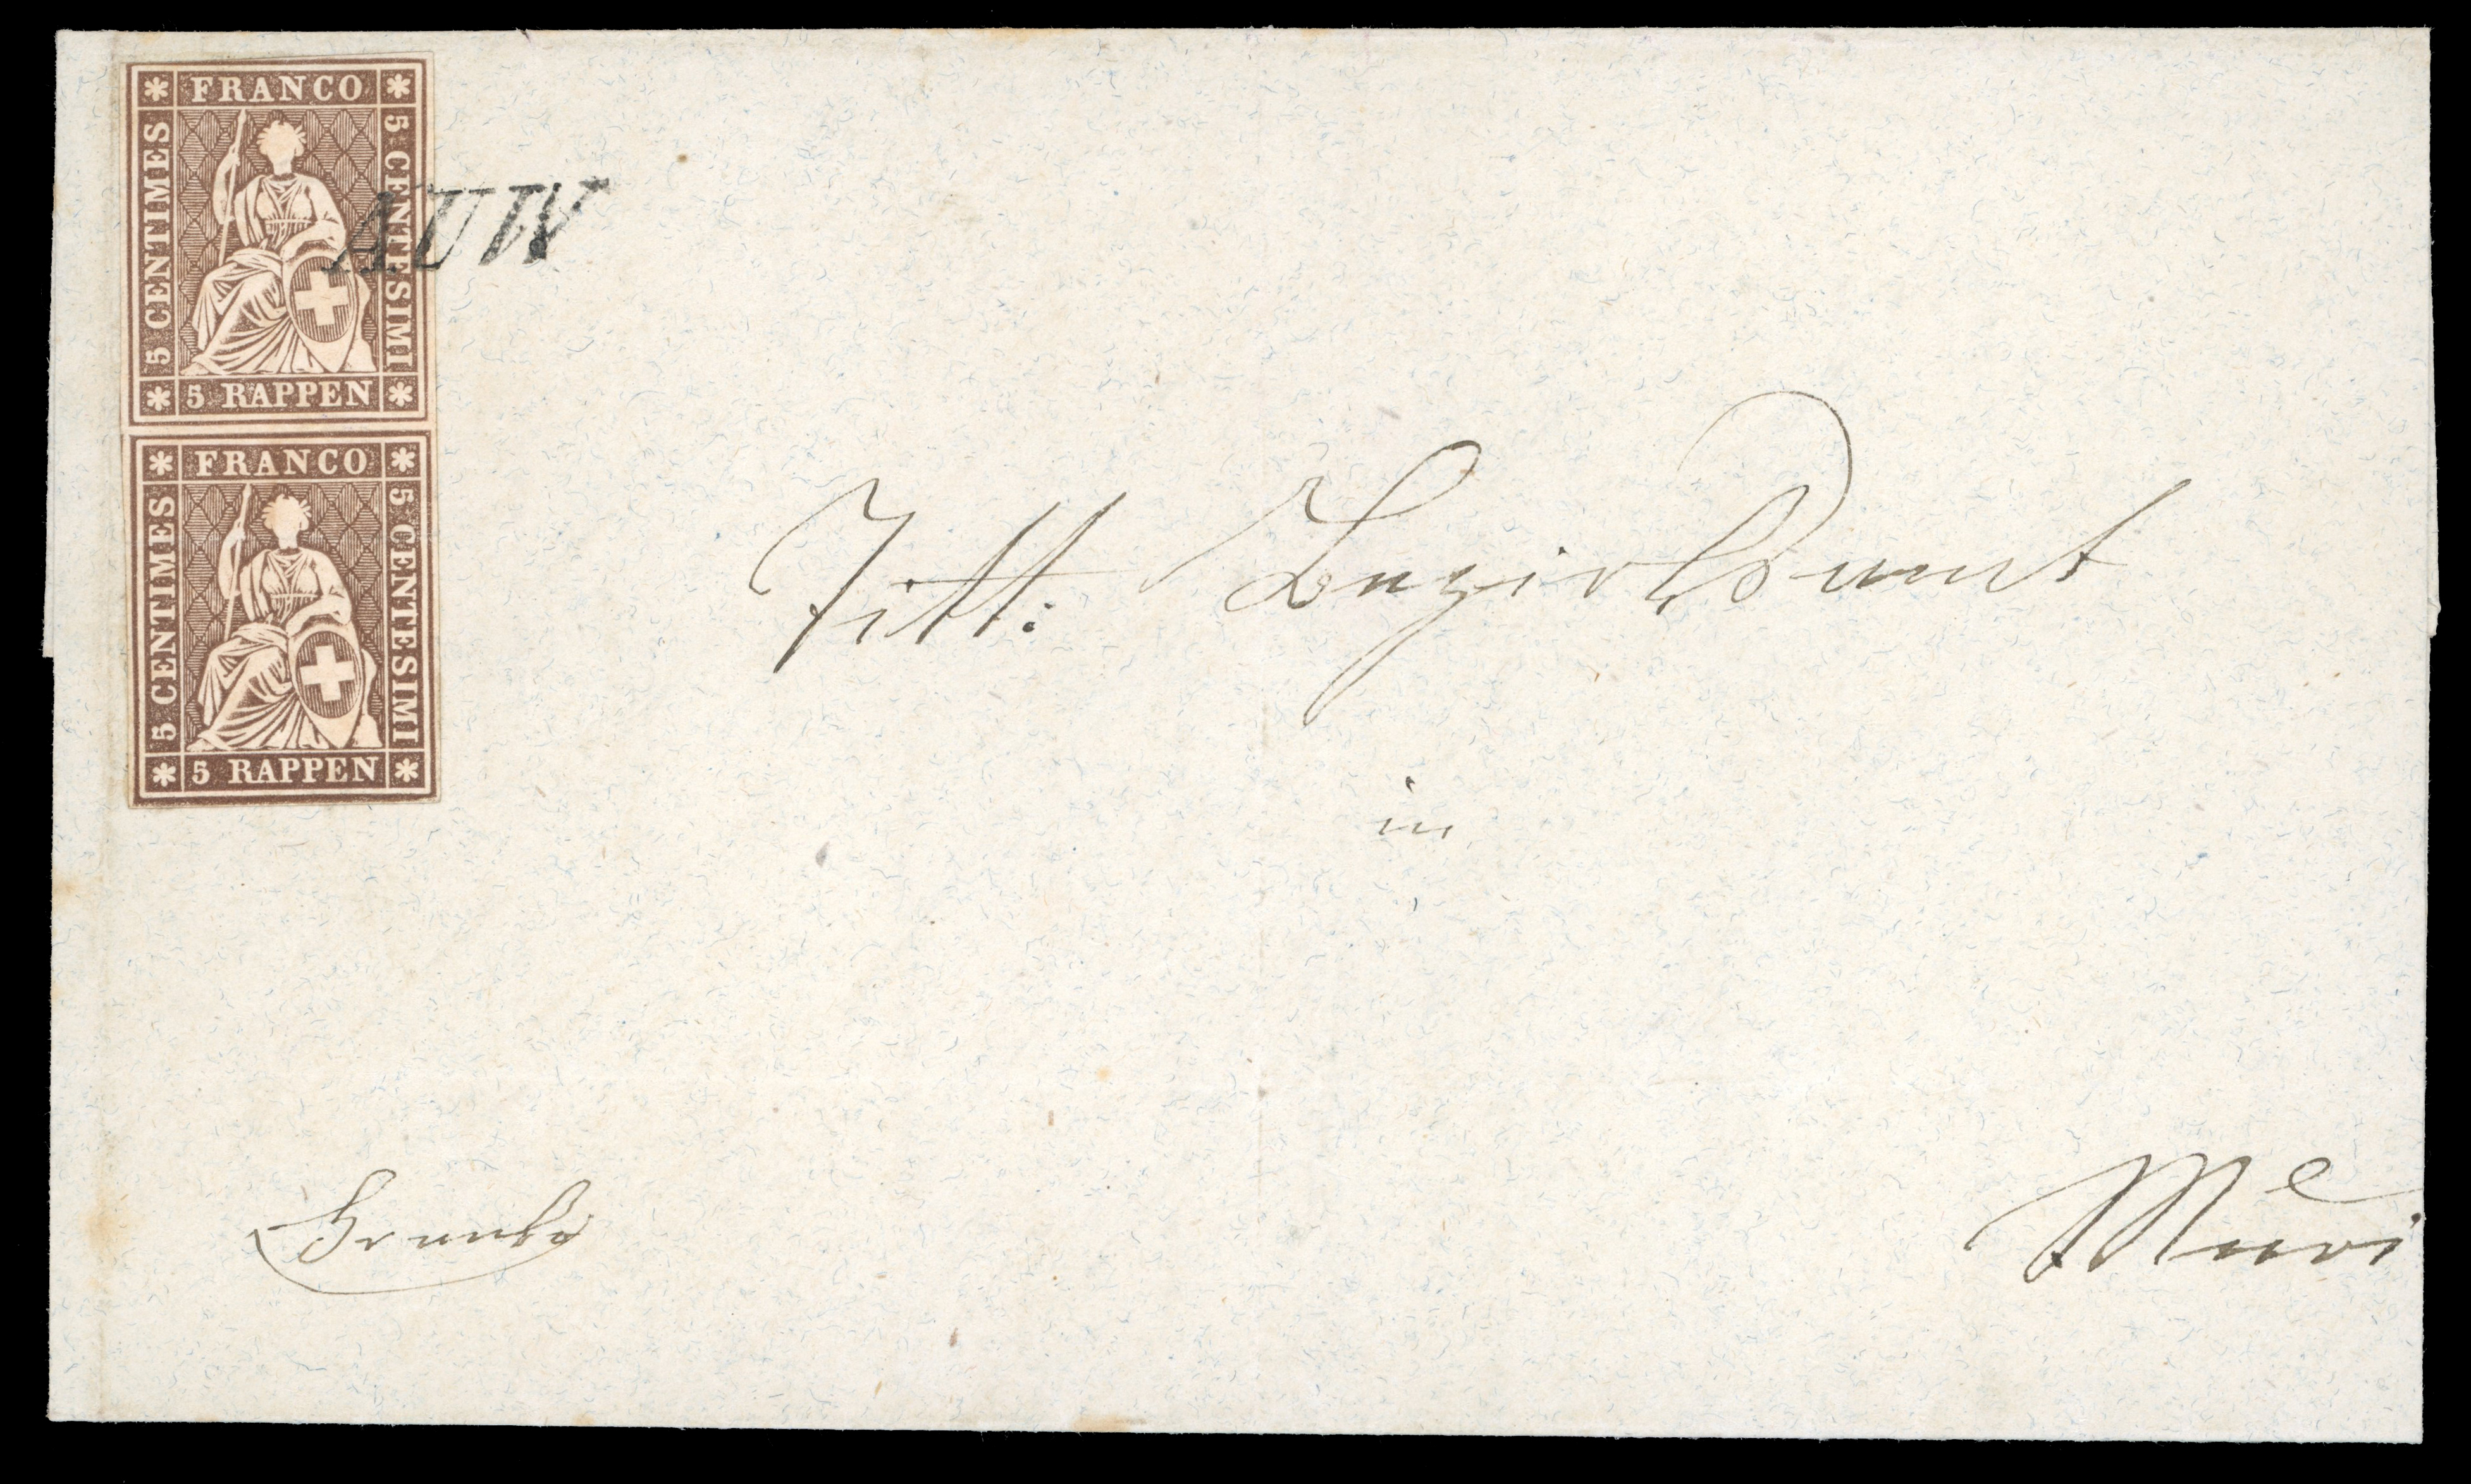 FRANCO
5 CENTIMES
5 CENTESIMI
5 RAPPEN
AUW
FRANCO
5 CENTIMES
5 CENTESIMI
5 RAPPEN
Titt: Bezirksamt
in
Muri
Franko